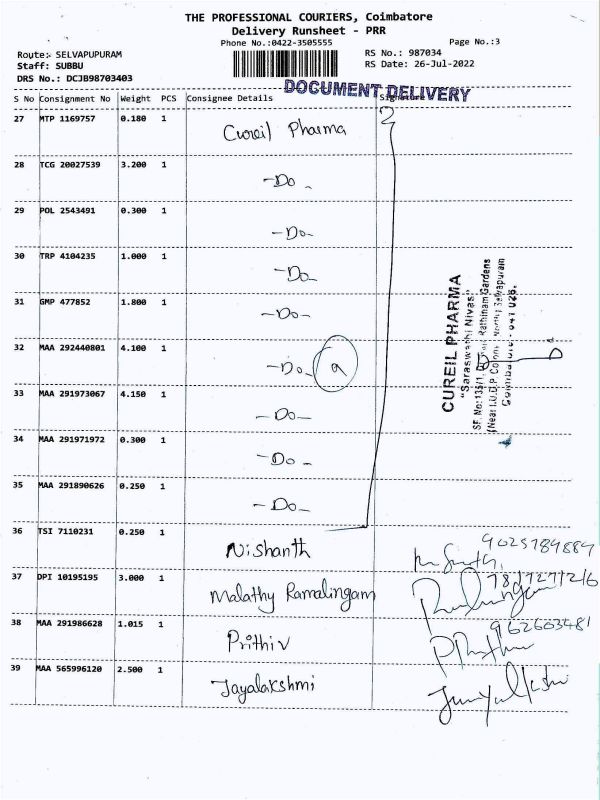 THE PROFESSIONAL COURIERS, Coimbatore
Delivery Runsheet - PRR
Phone No.:0422-3505555 Page No.:3
Route: SELVAPUPURAM RS No.: 987034
Staff: SUBBU RS Date: 26-Jul-2022
DRS No.: DCJB98703403
DOCUMENT DELIVERY
S No Consignment No Weight PCS Consignee Details Signature
27 MTP 1169757 0.180 1 Cureil Pharma
28 TCG 20027539 3.200 1 -Do-
29 POL 2543491 0.300 1 -Do-
30 TRP 4104235 1.000 1 -Do-
31 GMP 477852 1.800 1 -Do-
32 MAA 292440801 4.100 1 -Do- 9
33 MAA 291973067 4.150 1 -Do-
34 MAA 291971972 0.300 1 -Do-
35 MAA 291890626 0.250 1 -Do-
CUREIL PHARMA
"Saraswathi Nivas"
SF. No:135/1, Rathinam Gardens
(Near I.U.D.P Colony Selvapuram
Coimbatore - 641 026.
36 TSI 7110231 0.250 1 Nishanth
37 DPI 10195195 3.000 1 Malathy Ramalingam
38 MAA 291986628 1.015 1 Prithiv 962603481
39 MAA 565996120 2.500 1 Jayalakshmi